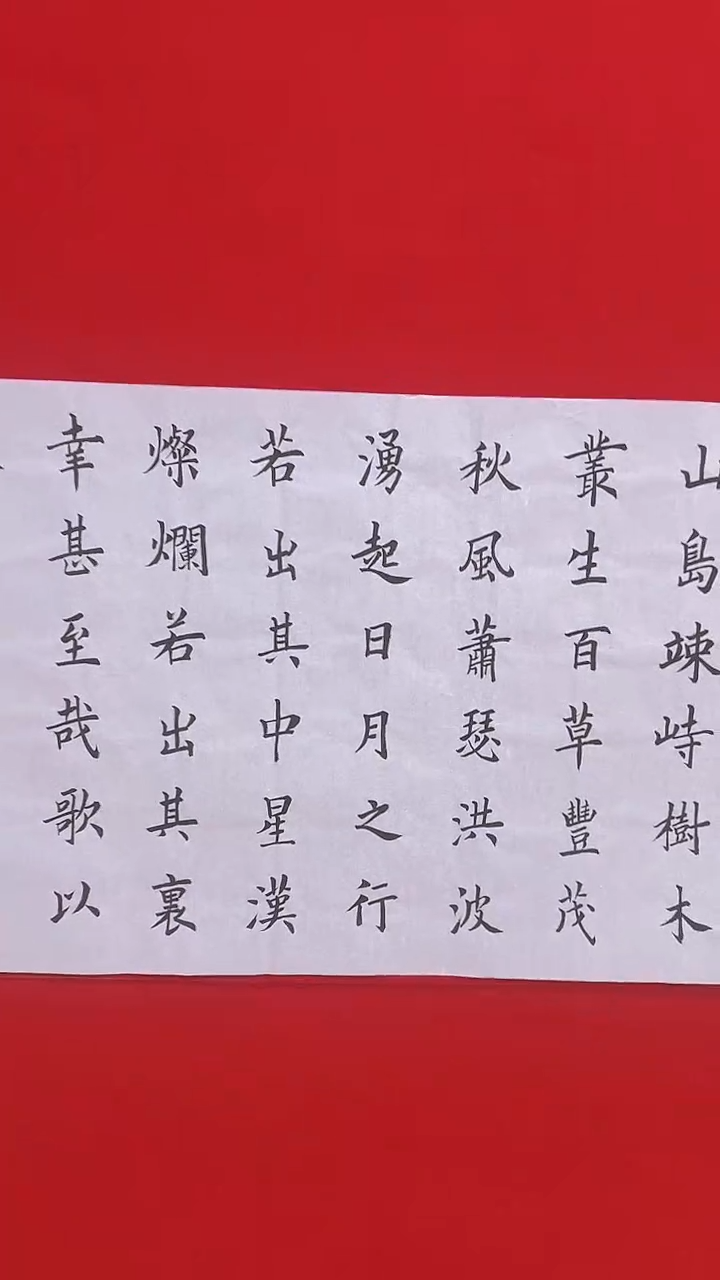 山島竦峙樹木
叢生百草豐茂
秋風蕭瑟洪波
湧起日月之行
若出其中星漢
燦爛若出其裏
幸甚至哉歌以